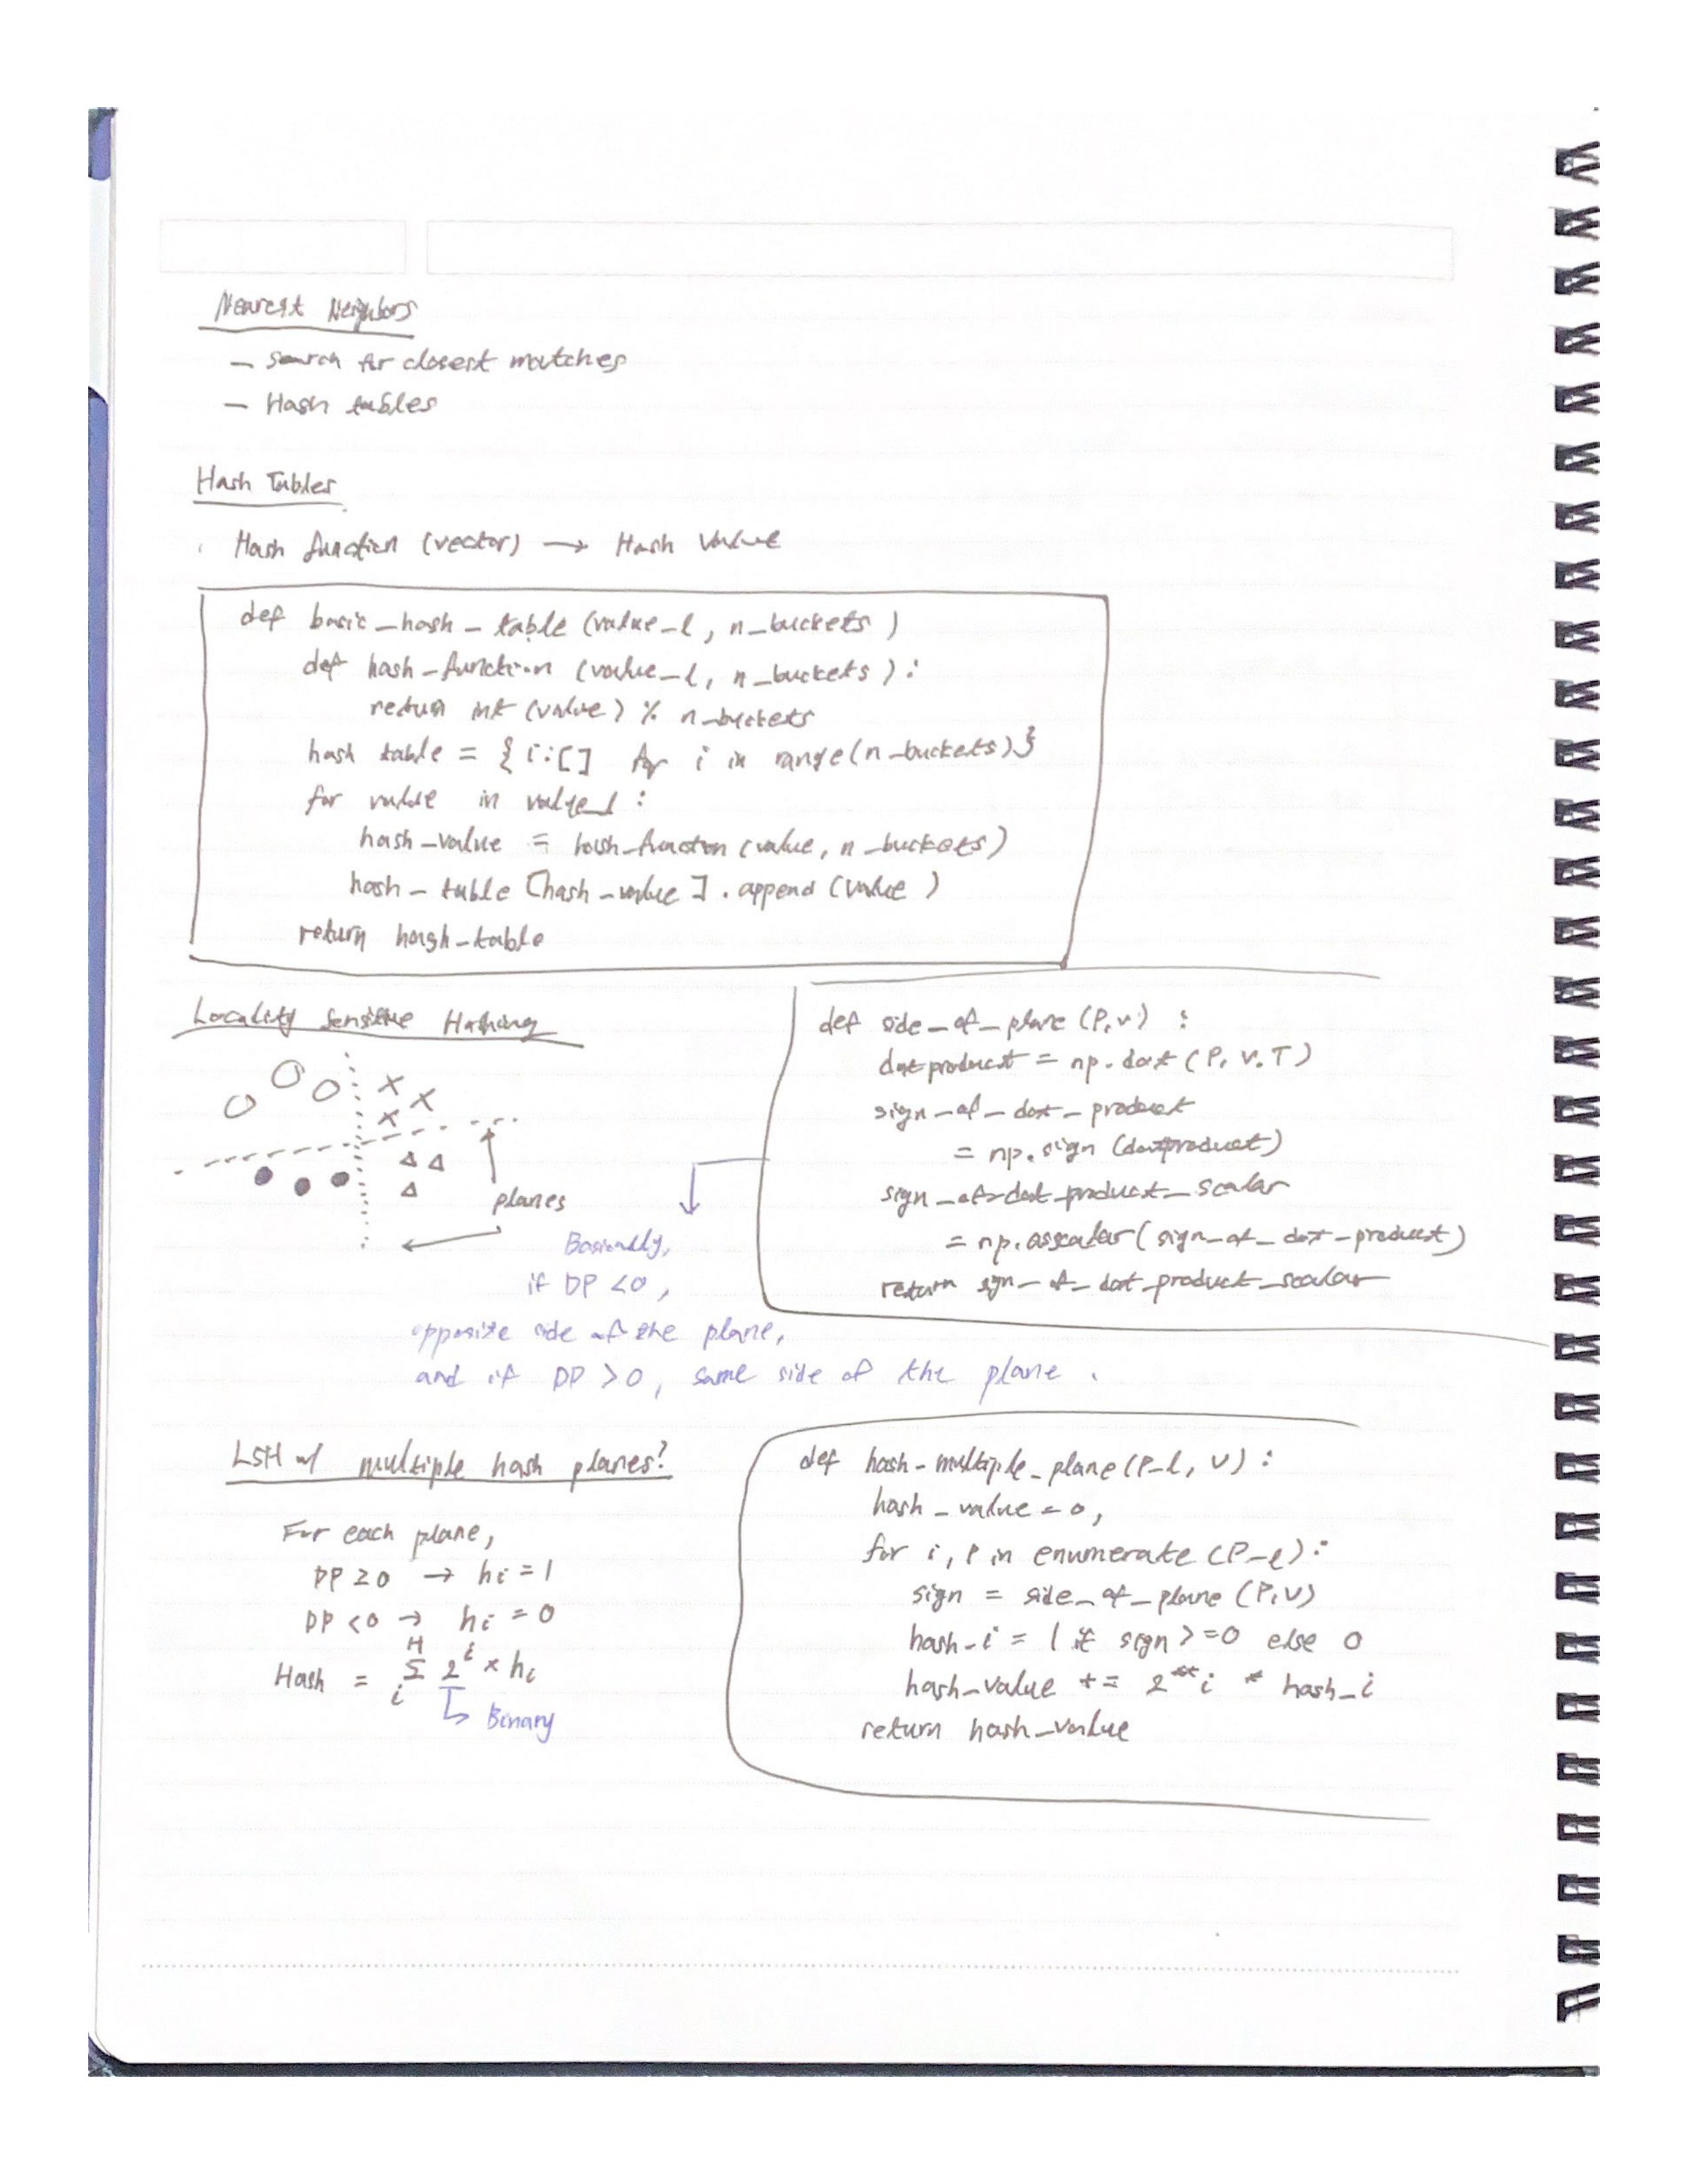 Nearest Neighbors
– Search for closest matches
– Hash tables
Hash Tables
. Hash function (vector) → Hash Value
def basic_hash_table (value_l, n_buckets)
def hash_function (value_l, n_buckets):
return int (value) % n_buckets
hash table = {i:[] for i in range(n_buckets)}
for value in value_l:
hash_value = hash_function (value, n_buckets)
hash_table [hash_value].append (value)
return hash_table
Locality Sensitive Hashing
planes
def side_of_plane (P, v) :
dotproduct = np.dot (P, V.T)
sign_of_dot_product
= np.sign (dotproduct)
sign_of_dot_product_scalar
= np.asscalar (sign_of_dot_product)
return sign_of_dot_product_scalar
Basically,
if DP <0,
opposite side of the plane,
and if DP >0, same side of the plane.
LSH w/ multiple hash planes?
For each plane,
DP ≥0 → hi = 1
DP <0 → hi = 0
Hash = H Σ i 2^i × hi
↳ Binary
def hash_multiple_plane (P_l, v) :
hash_value = 0,
for i, P in enumerate (P_l):
sign = side_of_plane (P, v)
hash_i = 1 if sign >=0 else 0
hash_value += 2**i * hash_i
return hash_value